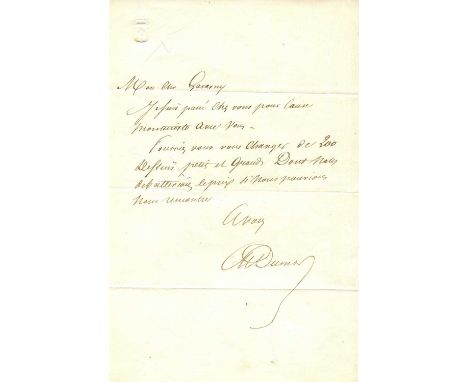 Mon cher Gavarny
Je suis passé chez vous pour Causer
Montecristo avec vous –
Pourriez vous vous charger de 200
Dessins petits et Grands Dont nous
debatterions le prix si Nous pouvions
Nous rencontrer
A vous
Al Dumas